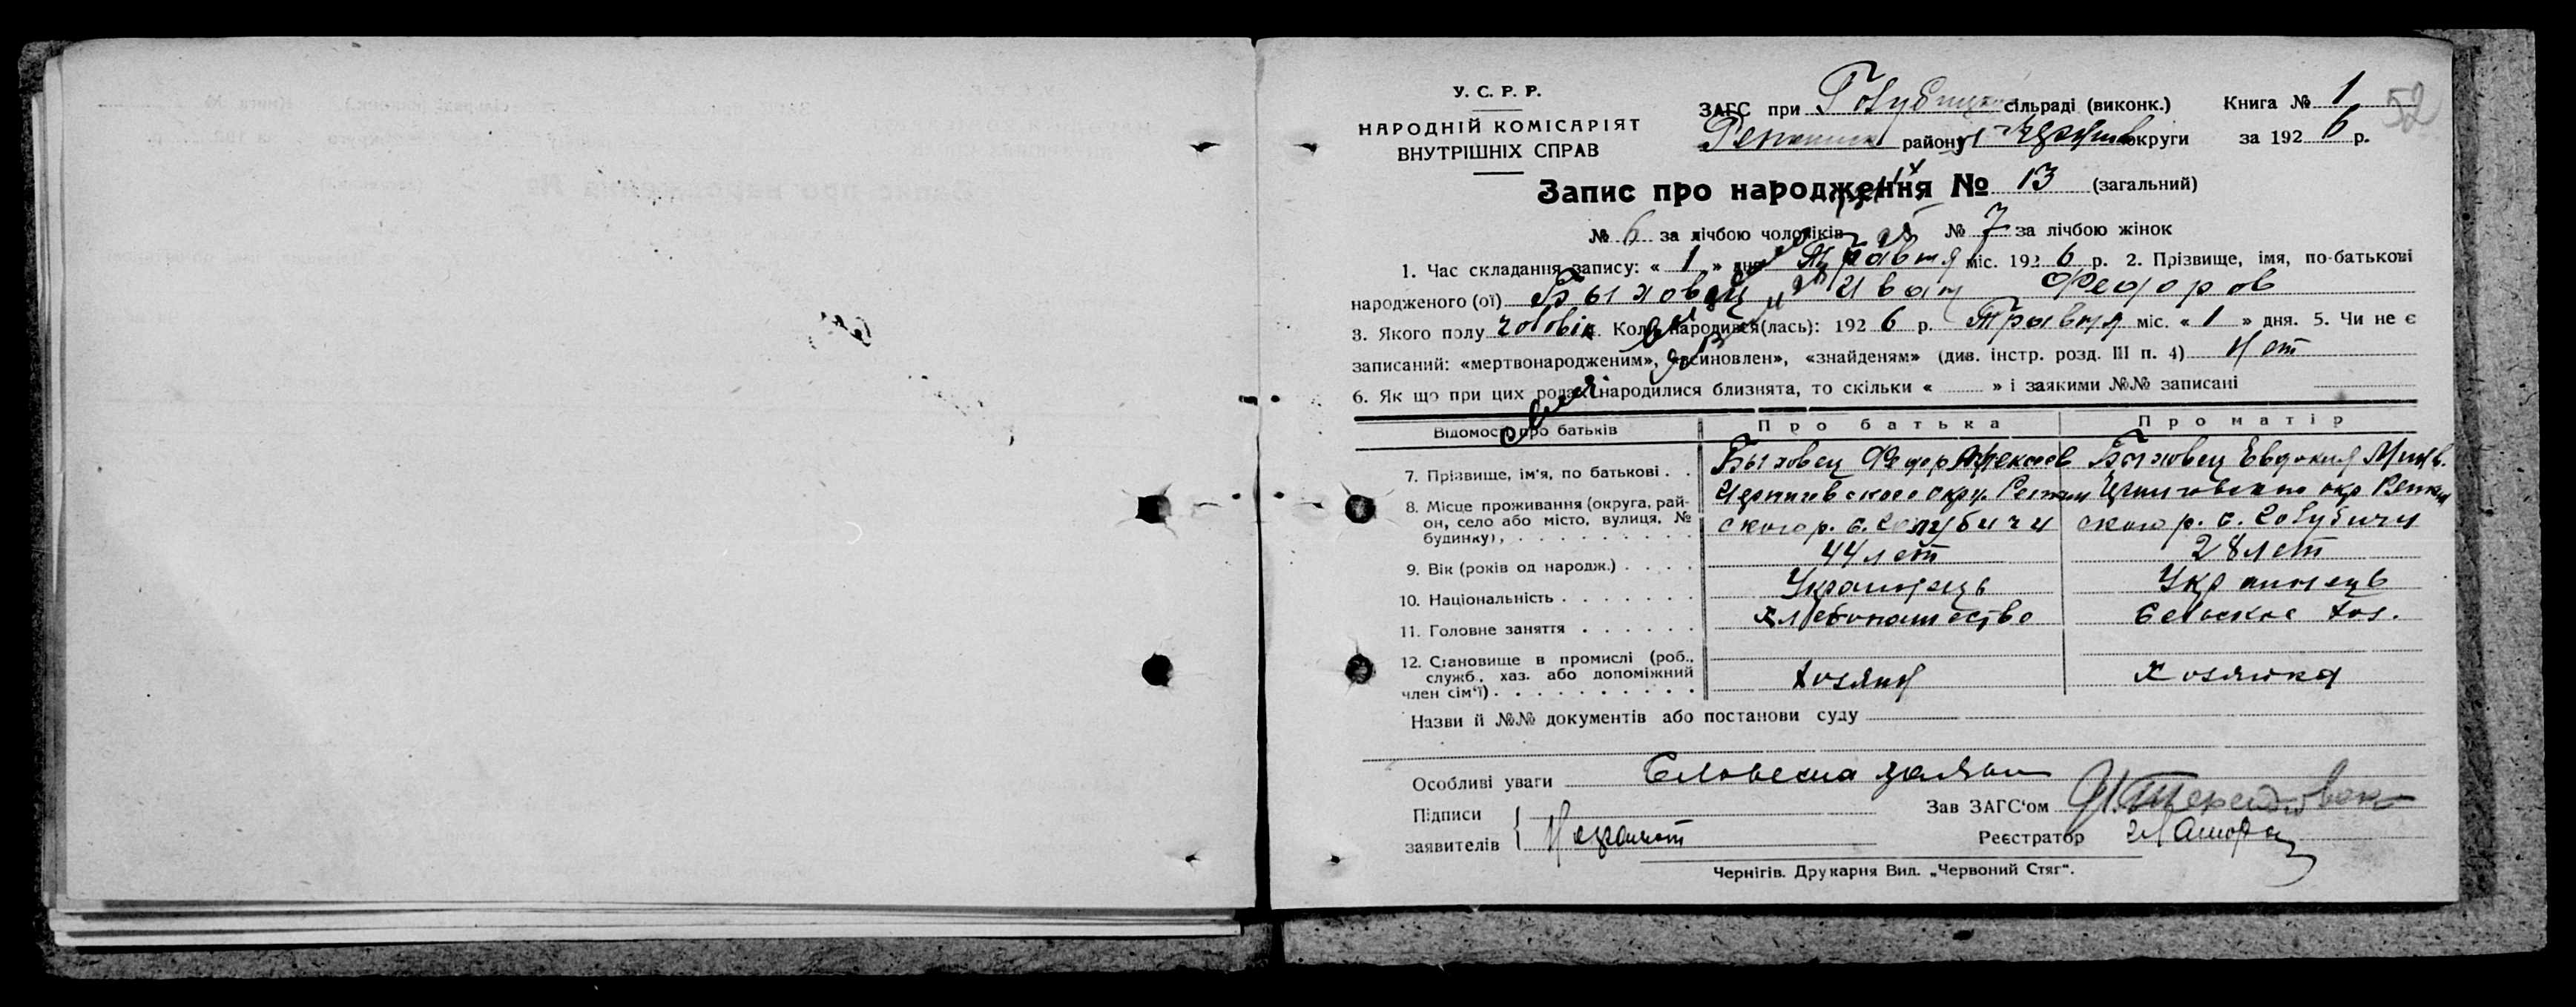 У. С. Р. Р.
НАРОДНІЙ КОМІСАРІЯТ
ВНУТРІШНІХ СПРАВ
ЗАГС при Голубицк сільраді (виконк.) Книга № 1
52
району округи за 192 6 р.
Запис про народження № 13 (загальний)
№ 6 за лічбою чоловіків № 7 за лічбою жінок
1. Час складання запису: « 1 » дня Травня міс. 192 6 р. 2. Прізвище, імя, по-батькові
народженого (ої) Быховец Иван Федоров
3. Якого полу чоловік Коли народився(лась): 192 6 р. Травня міс. « 1 » дня. 5. Чи не є
записаний: «мертвонародженим», «всиновлен», «знайденям» (див. інстр. розд. III п. 4) Нет
6. Як що при цих родах народилися близнята, то скільки « » і заякими №№ записані
Відомості про батьків Про батька Про матір
7. Прізвище, ім'я, по батькові . . Быховец Федор Алексеев Быховец Евдокия
8. Місце проживання (округа, рай-
он, село або місто, вулиця, №
будинку),
Черниговского окру. Репкин Черниговского окр Репкин
ского р. с. Голубичи ского р. с. Голубичи
9. Вік (років од народж.) . . . . 44 лет 28 лет
10. Національність . . . . . . . Украинець Украинець
11. Головне заняття . . . . . . хлебопашество Сельское хоз.
12. Становище в промислі (роб.,
служб., хаз. або допоміжний
член сім'ї) . . . . . . . . . . Хозяин Хозяйка
Назви й №№ документів або постанови суду
Особливі уваги Словесна заява
Підписи
заявителів Неграмот
Зав ЗАГС'ом
Реєстратор
Чернігів. Друкарня Вид. „Червоний Стяг“.